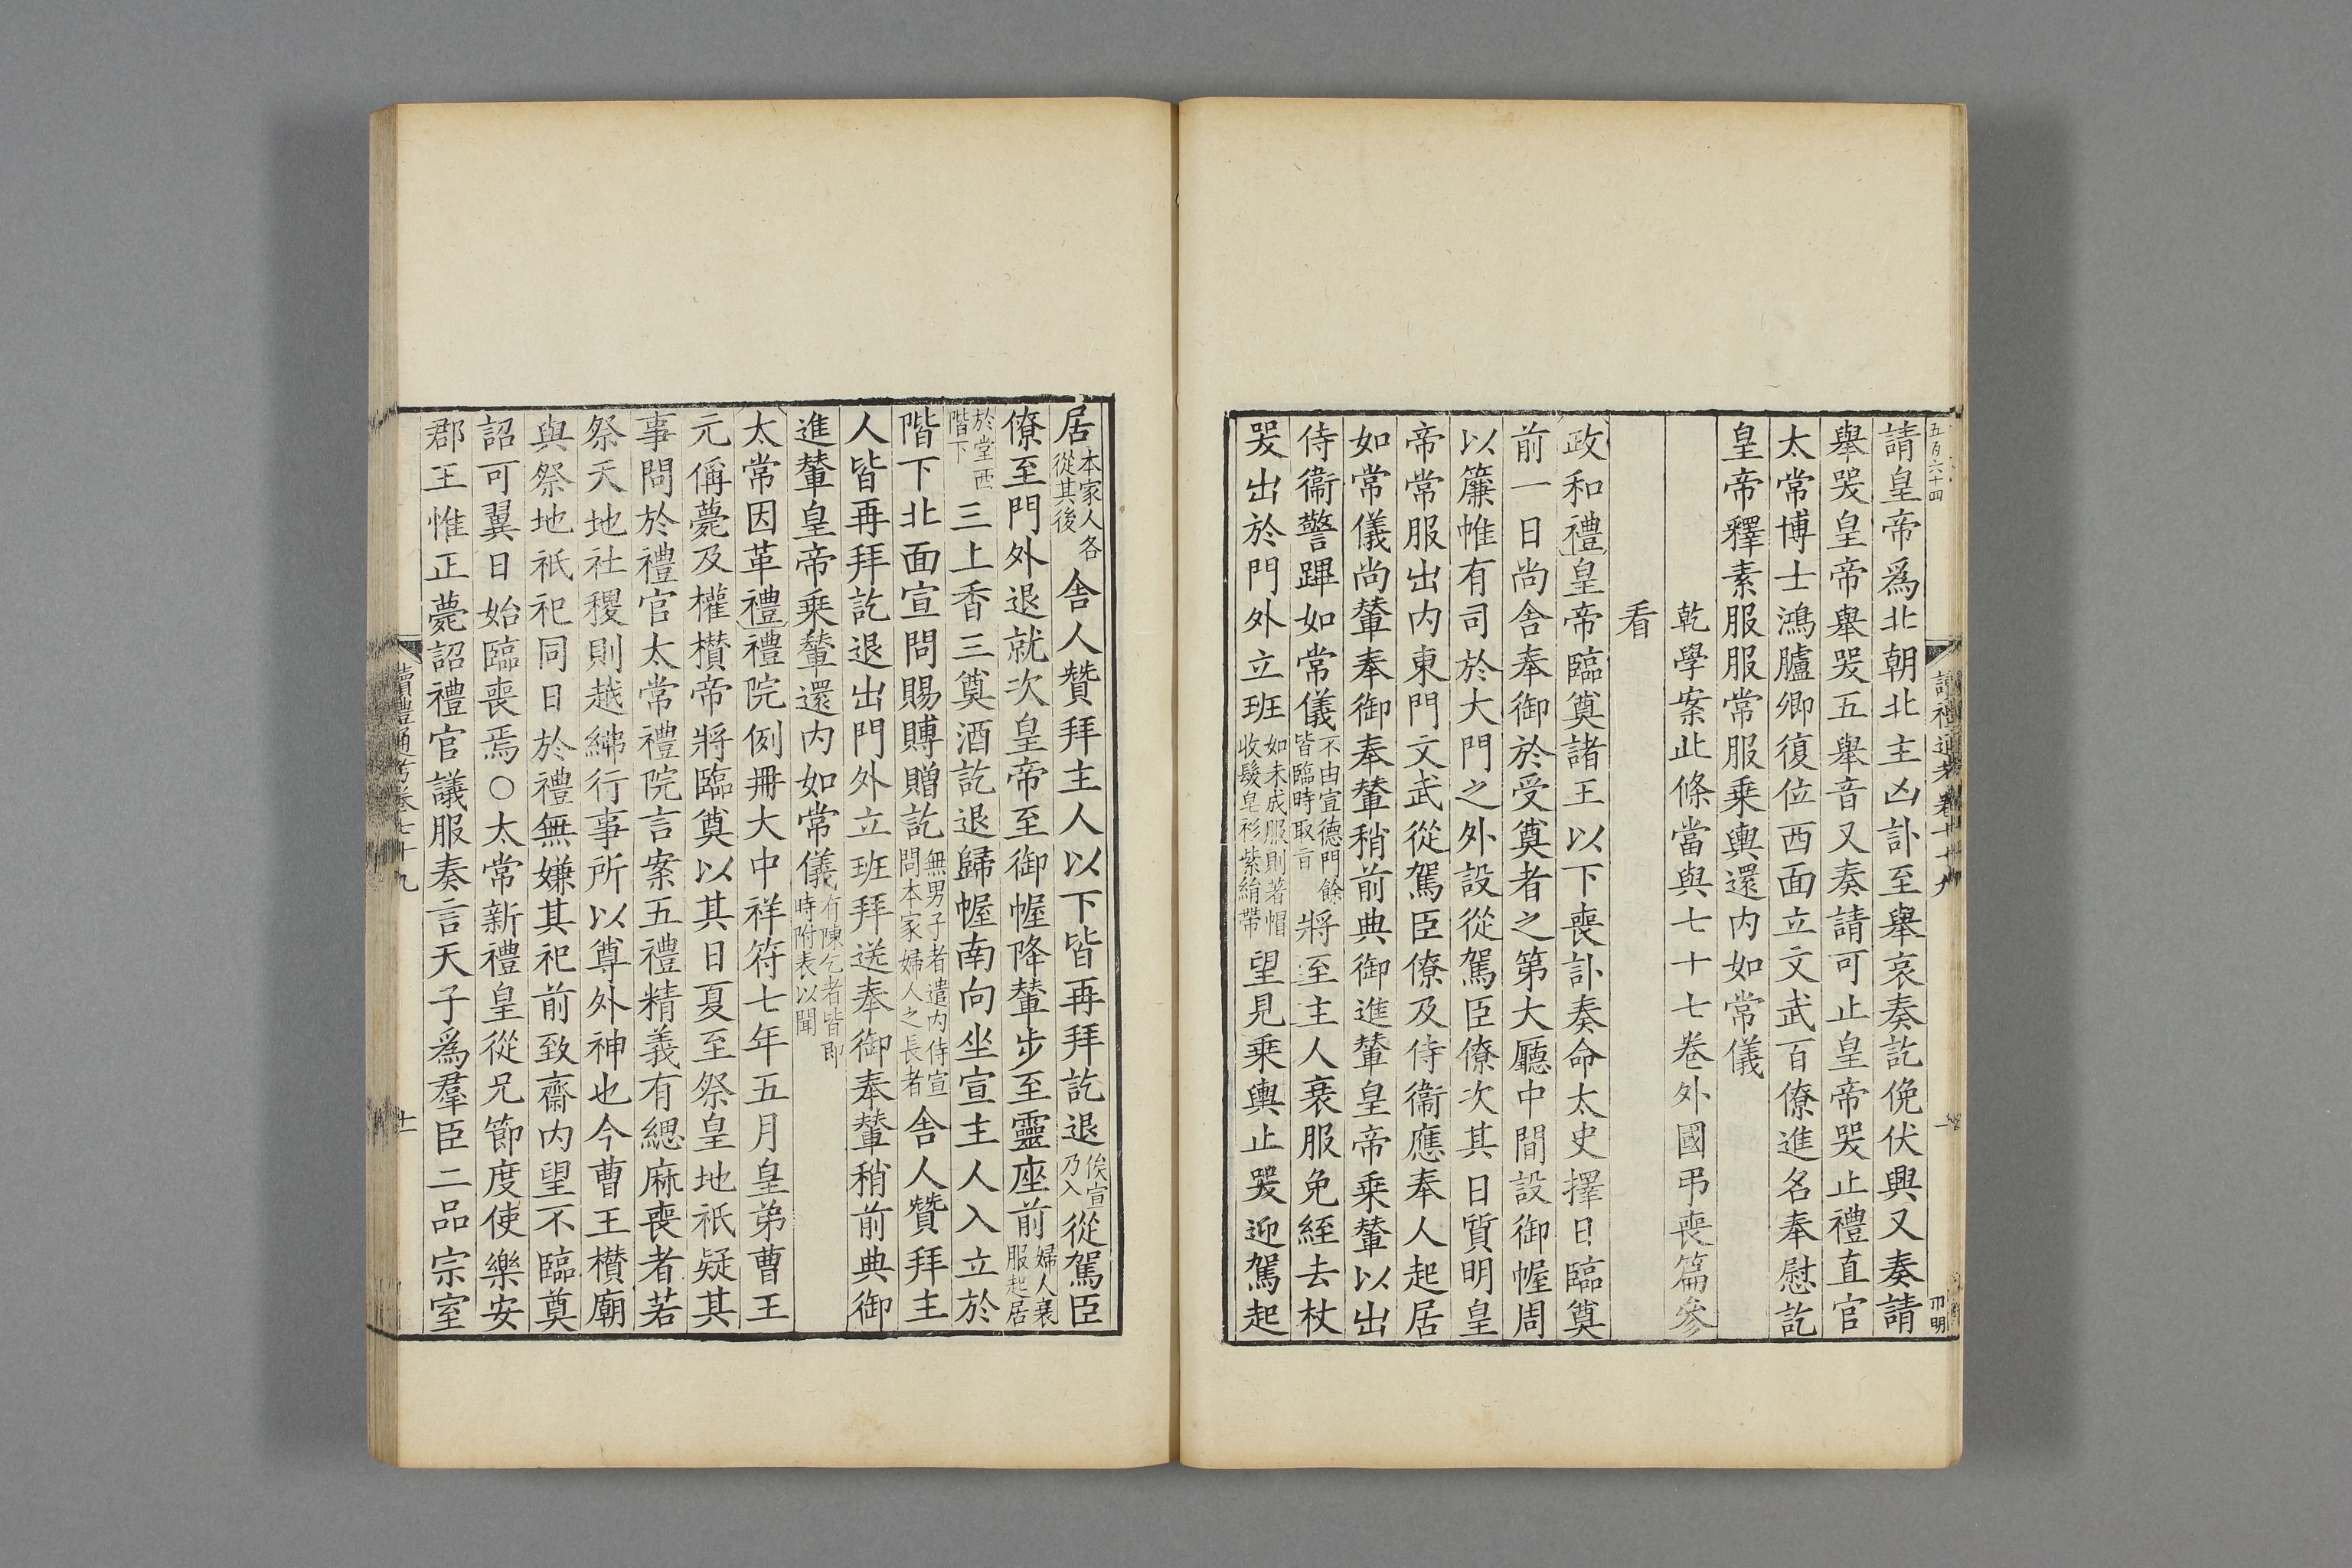 五百六十四
請皇帝爲北朝北主凶訃至舉哀奏訖俛伏興又奏請
舉哭皇帝舉哭五舉音又奏請可止皇帝哭止禮直官
太常博士鴻臚卿復位西面立文武百僚進名奉慰訖
皇帝釋素服服常服乗輿還内如常儀
乾學案此條當與七十七卷外國弔喪篇參
看
政和禮皇帝臨奠諸王以下喪訃奏命太史擇日臨奠
前一日尚舍奉御於受奠者之第大廳中間設御幄周
以簾帷有司於大門之外設從駕臣僚次其日質明皇
帝常服出内東門文武從駕臣僚及侍衞應奉人起居
如常儀尚輦奉御奉輦稍前典御進輦皇帝乗輦以出
侍衞警蹕如常儀不由宣德門餘皆臨時取㫖將至主人衰服免絰去杖
哭出於門外立班如未成服則著帽收髮皂衫紫絹帶望見乗輿止哭迎駕起
居本家人各從其後舍人贊拜主人以下皆再拜訖退俟宣乃入從駕臣
僚至門外退就次皇帝至御幄降輦步至靈座前婦人衰服起居
於堂西階下三上香三奠酒訖退歸幄南向坐宣主人入立於
階下北面宣問賜賻贈訖無男子者遣内侍宣問本家婦人之長者舍人贊拜主
人皆再拜訖退出門外立班拜送奉御奉輦稍前典御
進輦皇帝乗輦還内如常儀有陳乞者皆即時附表以聞
太常因革禮禮院例冊大中祥符七年五月皇弟曹王
元偁薨及權欑帝將臨奠以其日夏至祭皇地祇疑其
事問於禮官太常禮院言案五禮精義有緦麻喪者若
祭天地社稷則越紼行事所以尊外神也今曹王欑廟
與祭地祇祀同日於禮無嫌其祀前致齋内望不臨奠
詔可翼日始臨喪焉○太常新禮皇從兄節度使樂安
郡王惟正薨詔禮官議服奏言天子爲羣臣二品宗室
讀禮通考卷七十九
十一